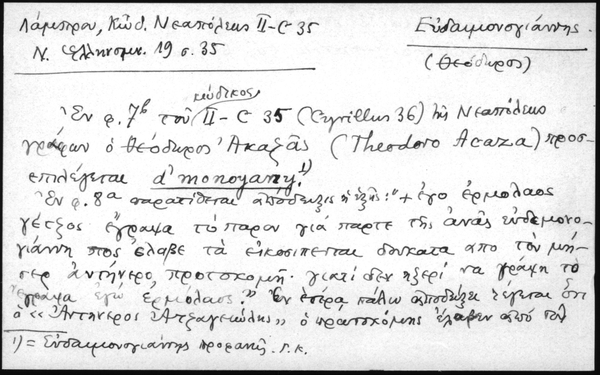 Λάμπρου, Κώδ. Νεαπόλεως II-C 35
Ν. Ἑλληνομν. 19 σ. 35
Εὐδαιμονογιάννης.
(Θεόδωρος)
κώδικος
Ἐν φ. 7b τοῦ II-C 35 (Cyrillus 36) τῆς Νεαπόλεως
γράφων ὁ Θεόδωρος Ἀκαζᾶς (Theodoro Acaza) προσ-
επιλέγεται d'monoyany.1)
Ἐν φ. 8a παρατίθεται ἀπόδειξις ἡ ἑξῆς: "+ ἐγο ἐρμολαος
γέτξος ἔγραψα τὸ παρον γιά παρτε τῆς ἀνᾶς εὐδεμονο-
γιάννη πος ἔλαβε τὰ εἰκοσιπεται δουκατα απο τον μή-
σερ ἀντήνερο προτοκομή. γιατί δεν ηξερί να γράψη τὸ
ἔγραψα ἐγώ Ἐρμόλαος." Ἐν ἑτέρᾳ πάλιν ἀποδείξει λέγεται ὅτι
ὁ «Ἀντήνερος Ἀτζαγιεώλης» ὁ πρωτοκόμης ἔλαβεν ἀπὸ τοῦ
1) = Εὐδαιμονογιάννης προφανῶς. Γ.Κ.